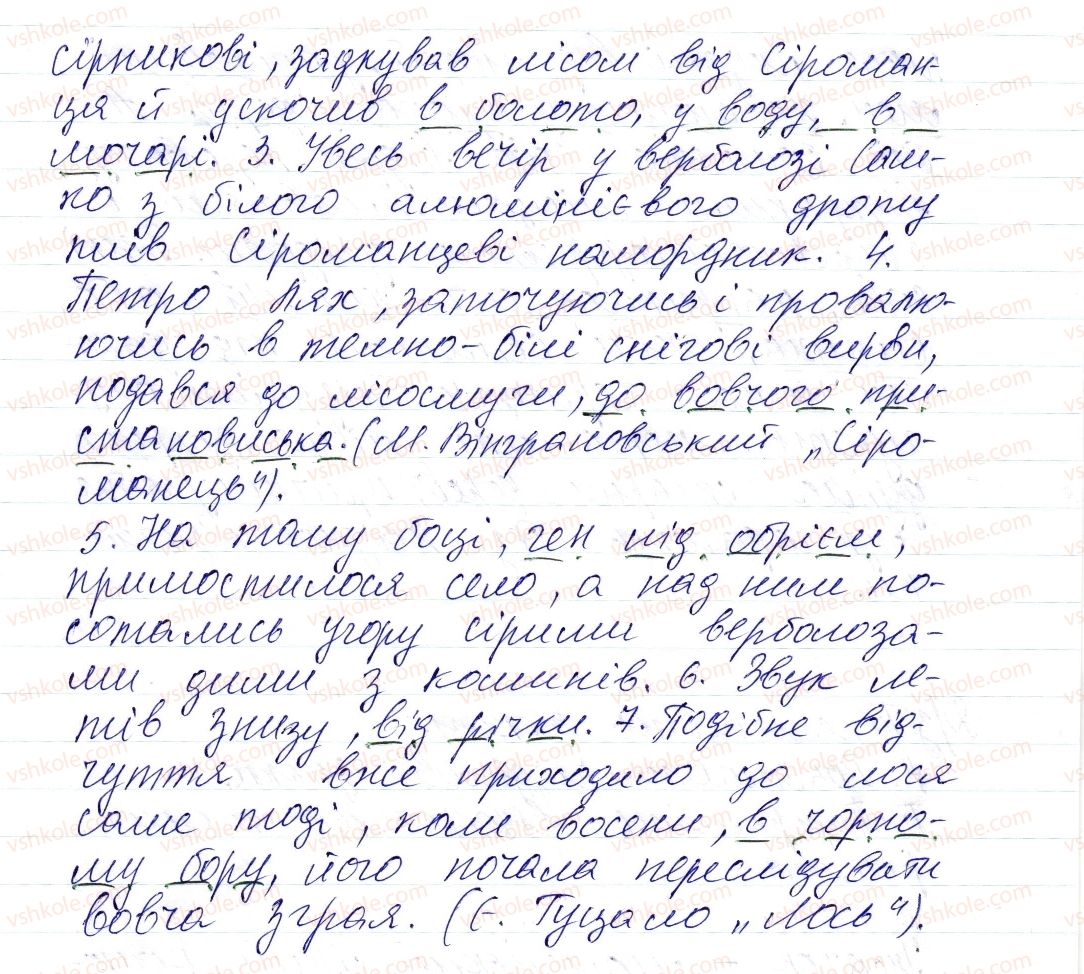 сірникові, задкував лісом від Сіроман-
ця й ускочив в болото, у воду, в
мочарі. 3. Увесь вечір у верболозі Саш-
ко з білого алюмінієвого дроту
плів Сіроманцеві намордник. 4.
Петро Лях, заточуючись і провалю-
ючись в темно-білі снігові вирви,
подався до лісосмуги, до вовчого при-
становиська. (М. Вінграновський „Сіро-
манець").
5. На тому боці, ген під обрієм,
примостилося село, а над ним по-
сотались угору сірими верболоза-
ми дими з коминів. 6. Звук ле-
тів знизу, від річки. 7. Подібне від-
чуття вже приходило до лося
саме тоді, коли восени, в чорно-
му бору, його почала переслідувати
вовча зграя. (Є. Гуцало „Лось").